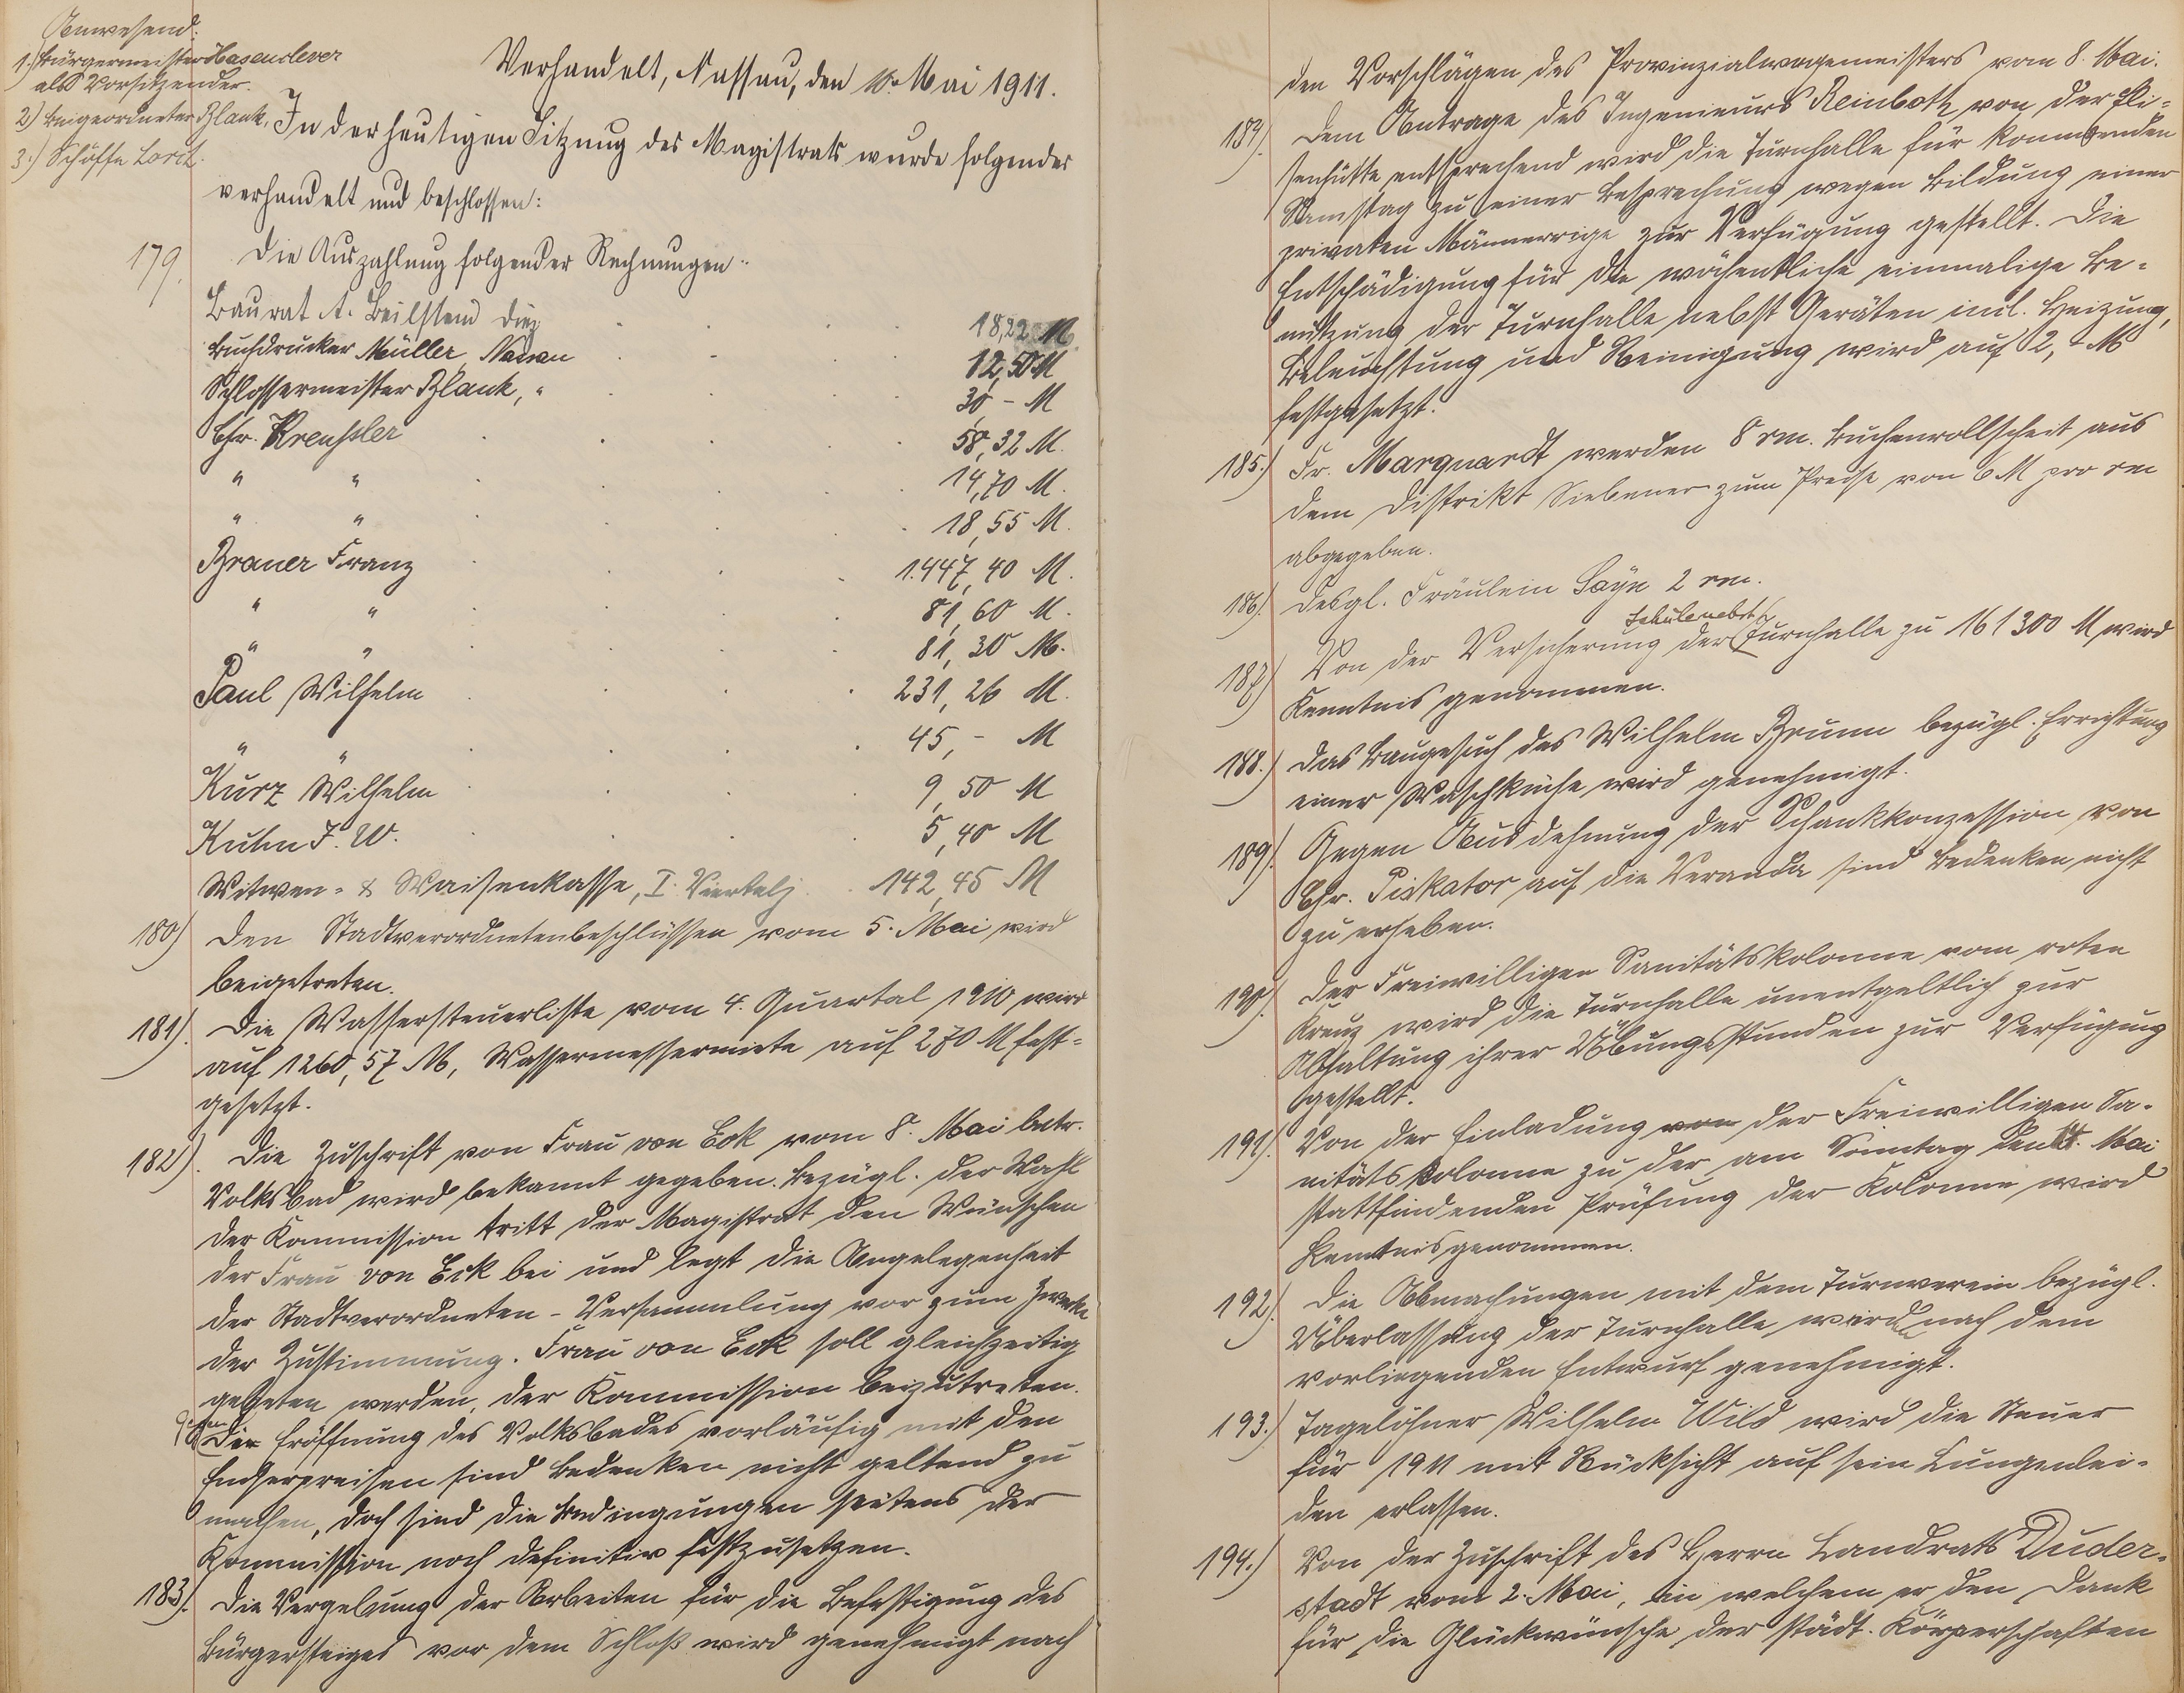 Anwesend:
1.) Bürgermeister Hasenclever
als Vorsitzender.
2.) Beigeordneter Blank.
3.) Schöffe Lorch.
Verhandelt, Nassau, den 10. Mai 1911.
In der heutigen Sitzung des Magistrats wurde folgendes
verhandelt und beschlossen:
179. Die Auszahlung folgender Rechnungen:
Baurat A. Beilstein Diez 18,22 M
Buchdrucker Müller, Nassau 12,50 M
Schlossermeister Blank, " 30,- M
Chr. Kreußler 58,32 M.
" " 14,70 M.
" " 18,55 M.
Brauer Franz 1.447,40 M.
" " 81,60 M.
" " 81,30 M.
Paul Wilhelm 231,26 M.
" " 45,- M
Kurz Wilhelm 9,50 M
Kuhn J. W. 5,40 M
Witwen- & Waisenkasse, I. Viertelj. 142,45 M
180) Den Stadtverordnetenbeschlüssen vom 5. Mai wird
beigetreten.
181). Die Wassersteuerliste vom 4. Quartal 1910 wird
auf 1260,57 M, Wassermessermiete auf 270 M fest-
gesetzt.
182). Die Zuschrift von Frau von Eck vom 8. Mai betr.
Volksbad wird bekannt gegeben. Bezügl. der Wahl
der Kommission tritt der Magistrat den Wünschen
der Frau von Eck bei und legt die Angelegenheit
der Stadtverordneten-Versammlung vor zum Zwecke
der Zustimmung. Frau von Eck soll gleichzeitig
gebeten werden, der Kommission beizutreten.
Gegen die Eröffnung des Volksbades vorläufig mit den
Emserpreisen sind Bedenken nicht geltend zu
machen, doch sind die Bedingungen seitens der
Kommission noch definitiv festzusetzen.
183). Die Vergebung der Arbeiten für die Befestigung des
Bürgersteiges vor dem Schloß wird genehmigt nach
den Vorschlägen des Provinzialwegemeisters vom 8. Mai.
184). Dem Antrage des Ingenieurs Reinboth von der Eli-
senhütte entsprechend wird die Turnhalle für kommenden
Samstag zu einer Besprechung wegen Bildung einer
privaten Männerriege zur Verfügung gestellt. Die
Entschädigung für die wöchentliche einmalige Be-
nutzung der Turnhalle nebst Geräten incl. Heizung,
Beleuchtung und Reinigung wird auf 2,- M
festgesetzt.
185.) Fr. Marquardt werden 8 rm. Buchenrollscheit aus
dem Distrikt Siebener zum Preise von 6 M pro rm
abgegeben.
186). Desgl. Fräulein Sayn 2 rm.
187) Von der Versicherung der Schule nebst Turnhalle zu 161300 M wird
Kenntnis genommen.
188.) Das Baugesuch des Wilhelm Brunn bezügl. Errichtung
einer Waschküche wird genehmigt.
189). Gegen Ausdehnung der Schankkonzession von
Chr. Piskator auf die Veranda sind Bedenken nicht
zu erheben.
190). Der Freiwilligen Sanitätskolonne vom roten
Kreuz wird die Turnhalle unentgeltlich zur
Abhaltung ihrer Übungsstunden zur Verfügung
gestellt.
191). Von der Einladung von der Freiwilligen Sa-
nitätskolonne zu der am Sonntag den Mai
stattfindenden Prüfung der Kolonne wird
Kenntnis genommen.
192). Die Abmachungen mit dem Turnverein bezügl.
Überlassung der Turnhalle werden nach dem
vorliegenden Entwurf genehmigt.
193.) Tagelöhner Wilhelm Wild wird die Steuer
für 1911 mit Rücksicht auf sein Lungenlei-
den erlassen.
194.) Von der Zuschrift des Herrn Landrats Duder-
stadt vom 2. Mai, in welchem er den Dank
für die Glückwünsche der städt. Körperschaften